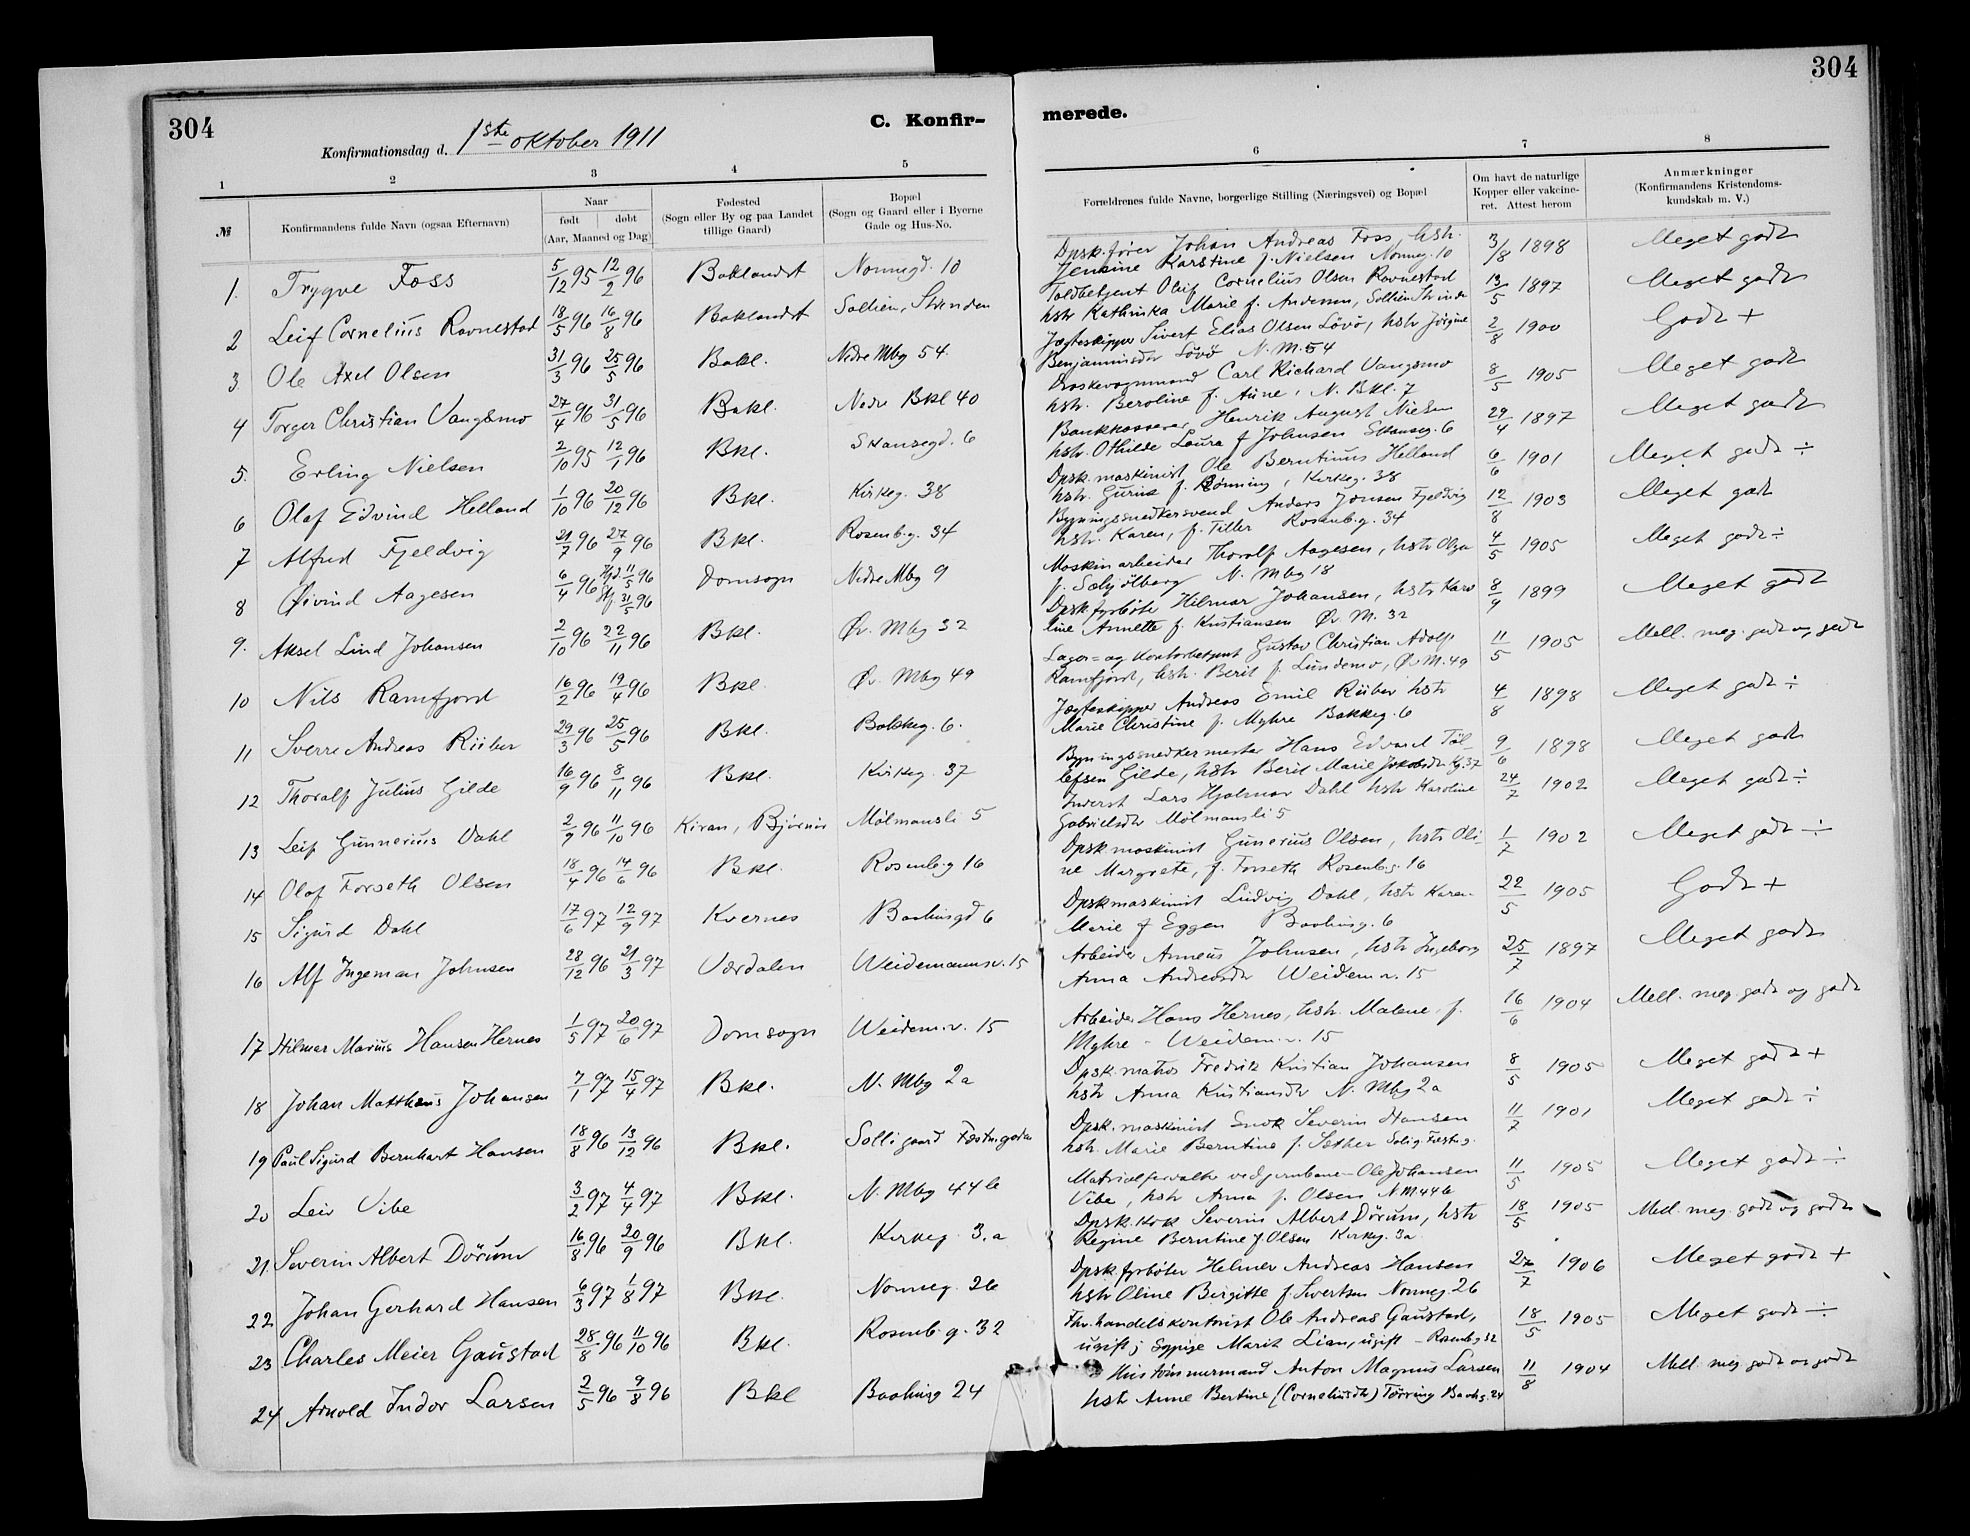 304
304
C. Konfir-
merede.
Konfirmationsdag d. 1ste oktober 1911
1 2 3 4 5 6 7 8
№
Konfirmandens fulde Navn (ogsaa Efternavn)
Naar
født | døbt
(Aar, Maaned og Dag)
Fødested
(Sogn eller By og paa Landet
tillige Gaard)
Bopæl
(Sogn og Gaard eller i Byerne
Gade og Hus-No.
Forældrenes fulde Navne, borgerlige Stilling (Næringsvei) og Bopæl
Om havt de naturlige
Kopper eller vakcine-
ret. Attest herom
Anmærkninger
(Konfirmandens Kristendoms-
kundskab m. V.)
1. Trygve Foss 5/12 95 12/2 96 Baklandet Nonnegd. 10 Dpsk.fører Johan Andreas Foss, hstr. 3/8 1898 Meget godt
Jensine Karstine f. Nielsen Nonneg. 10
2 Leif Cornelius Ravnestad 18/5 96 16/8 96 Baklandet Sollien, Strinden Toldbetjent Oluf Cornelius Olsen Ravnestad 13/5 1897 Meget godt
hstr Kathinka Marie f. Andersen, Sollien Strinden
3 Ole Axel Olsen 31/3 96 25/5 96 Bakl. Nedre Mbg 54. Jægteskipper Sivert Elias Olsen Lövö, hstr Jörgine 2/8 1900 Godt +
Benjaminsdtr Lövö N.M. 54
4 Torger Christian Vangsmo 27/4 96 31/5 96 Bakl. Nedre Bkl 40 Droskevognmand Carl Richard Vangsmo 8/5 1905 Meget godt
hstr. Beroline f. Aune, N. Bkl. 7
5. Erling Nielsen 2/10 95 12/1 96 Bkl. Skansegd. 6 Bankkasserer Henrik August Nielsen 29/4 1897 Meget godt
hstr. Othilde Laura f Johnsen Skanseg. 6
6 Olaf Edvind Helland 1/10 96 20/12 96 Bkl. Kirkeg. 38 Dpsk.maskinist Ole Berntinus Helland 6/6 1901 Meget godt ÷
hstr. Gurine f. Rönning, Kirkeg. 38
7 Alfred Fjeldvig 21/7 96 27/9 96 Bkl. Rosenb.g. 34 Bygningssnedkersvend Anders Jonsen Fjeldvig 12/8 1903 Meget godt
hstr. Karen, f. Tiller Rosenb.g. 34
8 Øivind Aagesen 6/4 96 Hjd. 11/5 96 Stf 31/5 96 Domsogn Nedre Mbg 9 Maskinarbeider Thoralf Aagesen, hstr Olga 4/5 1905 Meget godt ÷
f. Sölyölberg N. Mbg 18
9. Aksel Lind Johansen 2/10 96 22/11 96 Bkl. Öv. Mbg 32 Dpsk.fyrböter Hilmar Johansen, hstr Karo 8/9 1899 Meget godt
line Annette f. Kristiansen Öv M. 32
10 Nils Ramfjord 16/2 96 19/4 96 Bkl. Öv. Mbg 49 Lager- og Kontorbetjent Gustav Christian Adolf 11/5 1905 Mell. meg. godt og godt
Ramfjord, hstr. Berit f. Lundemo, Öv M. 49
11 Sverre Andreas Riiber 29/3 96 25/5 96 Bkl. Bakkeg. 6. Jægteskipper Andreas Emil Riiber hstr 4/8 1898 Meget godt ÷
Marie Christine f. Myhre Bakkeg. 6
12 Thoralf Julius Gilde 16/9 96 8/11 96 Bkl. Kirkeg. 37 Bygningssnedkermester Hans Edvard Tol- 9/6 1898 Meget godt
lefsen Gilde, hstr Berit Marie Jakobsdtr Kg. 37
13 Leif Gunnerius Dahl 2/9 96 11/10 96 Kiran, Bjørnør Mölmansli 5 Inderst Lars Hjalmar Dahl hstr Karoline 24/7 1902 Meget godt ÷
Gabrielsdtr Mölmansli 5
14 Olaf Forseth Olsen 18/4 96 14/6 96 Bkl. Rosenb.g 16 Dpsk maskinist Gunerius Olsen, hstr Oli- 1/7 1902 Meget godt ÷
ne Margrete, f. Forseth Rosenb.g. 16
15 Sigurd Dahl 17/6 97 12/9 97 Kvernes Baahusgd 6 Dpskmaskinist Ludvig Dahl, hstr Karen 22/5 1905 Godt +
Marie f Eggen Baahusg. 6
16 Alf Ingeman Johnsen 28/12 96 21/3 97 Værdalen Weidemannsv. 15 Arbeider Anneus Johnsen, hstr Ingeborg 25/7 1897 Meget godt
Anna Andreasdtr Weidem.v. 15
17 Hilmar Marius Hansen Hernes 1/5 97 20/6 97 Domsogn Weidem.v. 15 Arbeider Hans Hernes, hstr. Malene f. 16/6 1904 Mell. meg. godt og godt
Myhre - Weidem.v. 15
18 Johan Matthæus Johansen 7/1 97 15/4 97 Bkl. N. Mbg 2a Dpsk.matros Fredrik Kristian Johansen 8/5 1905 Meget godt +
hstr Anna Kristiansdtr N. Mbg 2a
19 Paul Sigurd Bernhart Hansen 18/8 96 13/12 96 Bkl. Solligaard Fæstn.gaden Dpsk.maskinist Enok Severin Hansen 11/7 1901 Meget godt ÷
hstr. Marie Berntine f. Sæther Solig. Fæst.g.
20 Leiv Vibe 3/2 97 4/4 97 Bkl. N. Mbg 44 b Matrialforvalter ved jernbanen Ole Johansen 11/5 1905 Meget godt ÷
Vibe, hstr Anna f. Olsen N M 44 b
21. Severin Albert Dörum 16/8 96 20/9 96 Bkl. Kirkeg. 3.a Dpsk.kok Severin Albert Dörum, hstr 18/5 1905 Mell. meg. godt og godt
Regine Berntine f. Olsen Kirkeg. 3a
22 Johan Gerhard Hansen 6/3 97 1/8 97 Bkl. Nonneg. 26 Dpsk.fyrböter Helmer Andreas Hansen 27/7 1906 Meget godt +
hstr Oline Birgitte f. Sivertsen Nonneg 26
23 Charles Meier Gaustad 28/8 96 11/10 96 Bkl. Rosenb.g. 32 Fhv. handelskontorist Ole Andreas Gaustad, 18/5 1905 Meget godt ÷
ugift; Sypige Marit Lian, ugift - Rosenb.g 32
24 Arnold Indor Larsen 2/5 96 9/8 96 Bkl Baahusg 24 Hustömmermand Anton Magnus Larsen 11/8 1904 Mell. meg godt og godt
hstr Anne Bertine (Corneliusdtr) Törring Baahg. 24